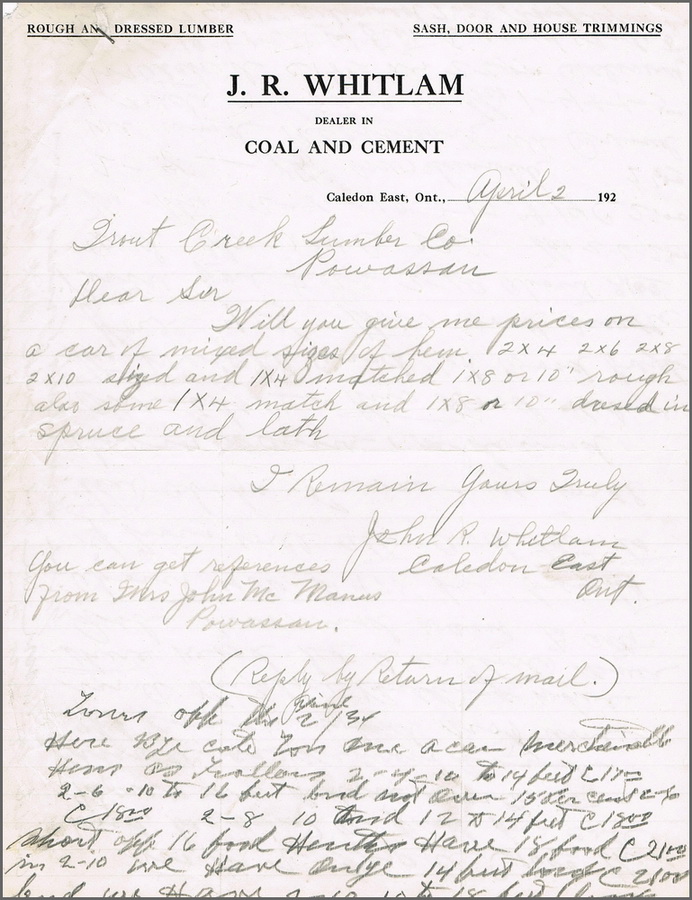 ROUGH AND DRESSED LUMBER SASH, DOOR AND HOUSE TRIMMINGS
J. R. WHITLAM
DEALER IN
COAL AND CEMENT
Caledon East, Ont., April 2 192
Trout Creek Lumber Co.
Powassan
Dear Sir
Will you give me prices on
a car of mixed sizes of hem. 2x4 2x6 2x8
2x10 sized and 1x4 matched 1x8 or 10" rough
also some 1x4 match and 1x8 or 10" dressed in
spruce and lath
I Remain Yours Truly
John R. Whitlam
You can get references Caledon East
from Mrs John Mc Manus Ont.
Powassan.
(Reply by Return of mail.)
Yours off 2/34
Here a car
Hem as 2-4-10 to 14 feet
2-6-10 to 16 feet not over 15
C 18 00 2-8 10 and 12 to 14 feet C 18 00
Short off 16 food Have 18 food C 21 00
in 2-10 we Have 14 feet C 21 00
we Have